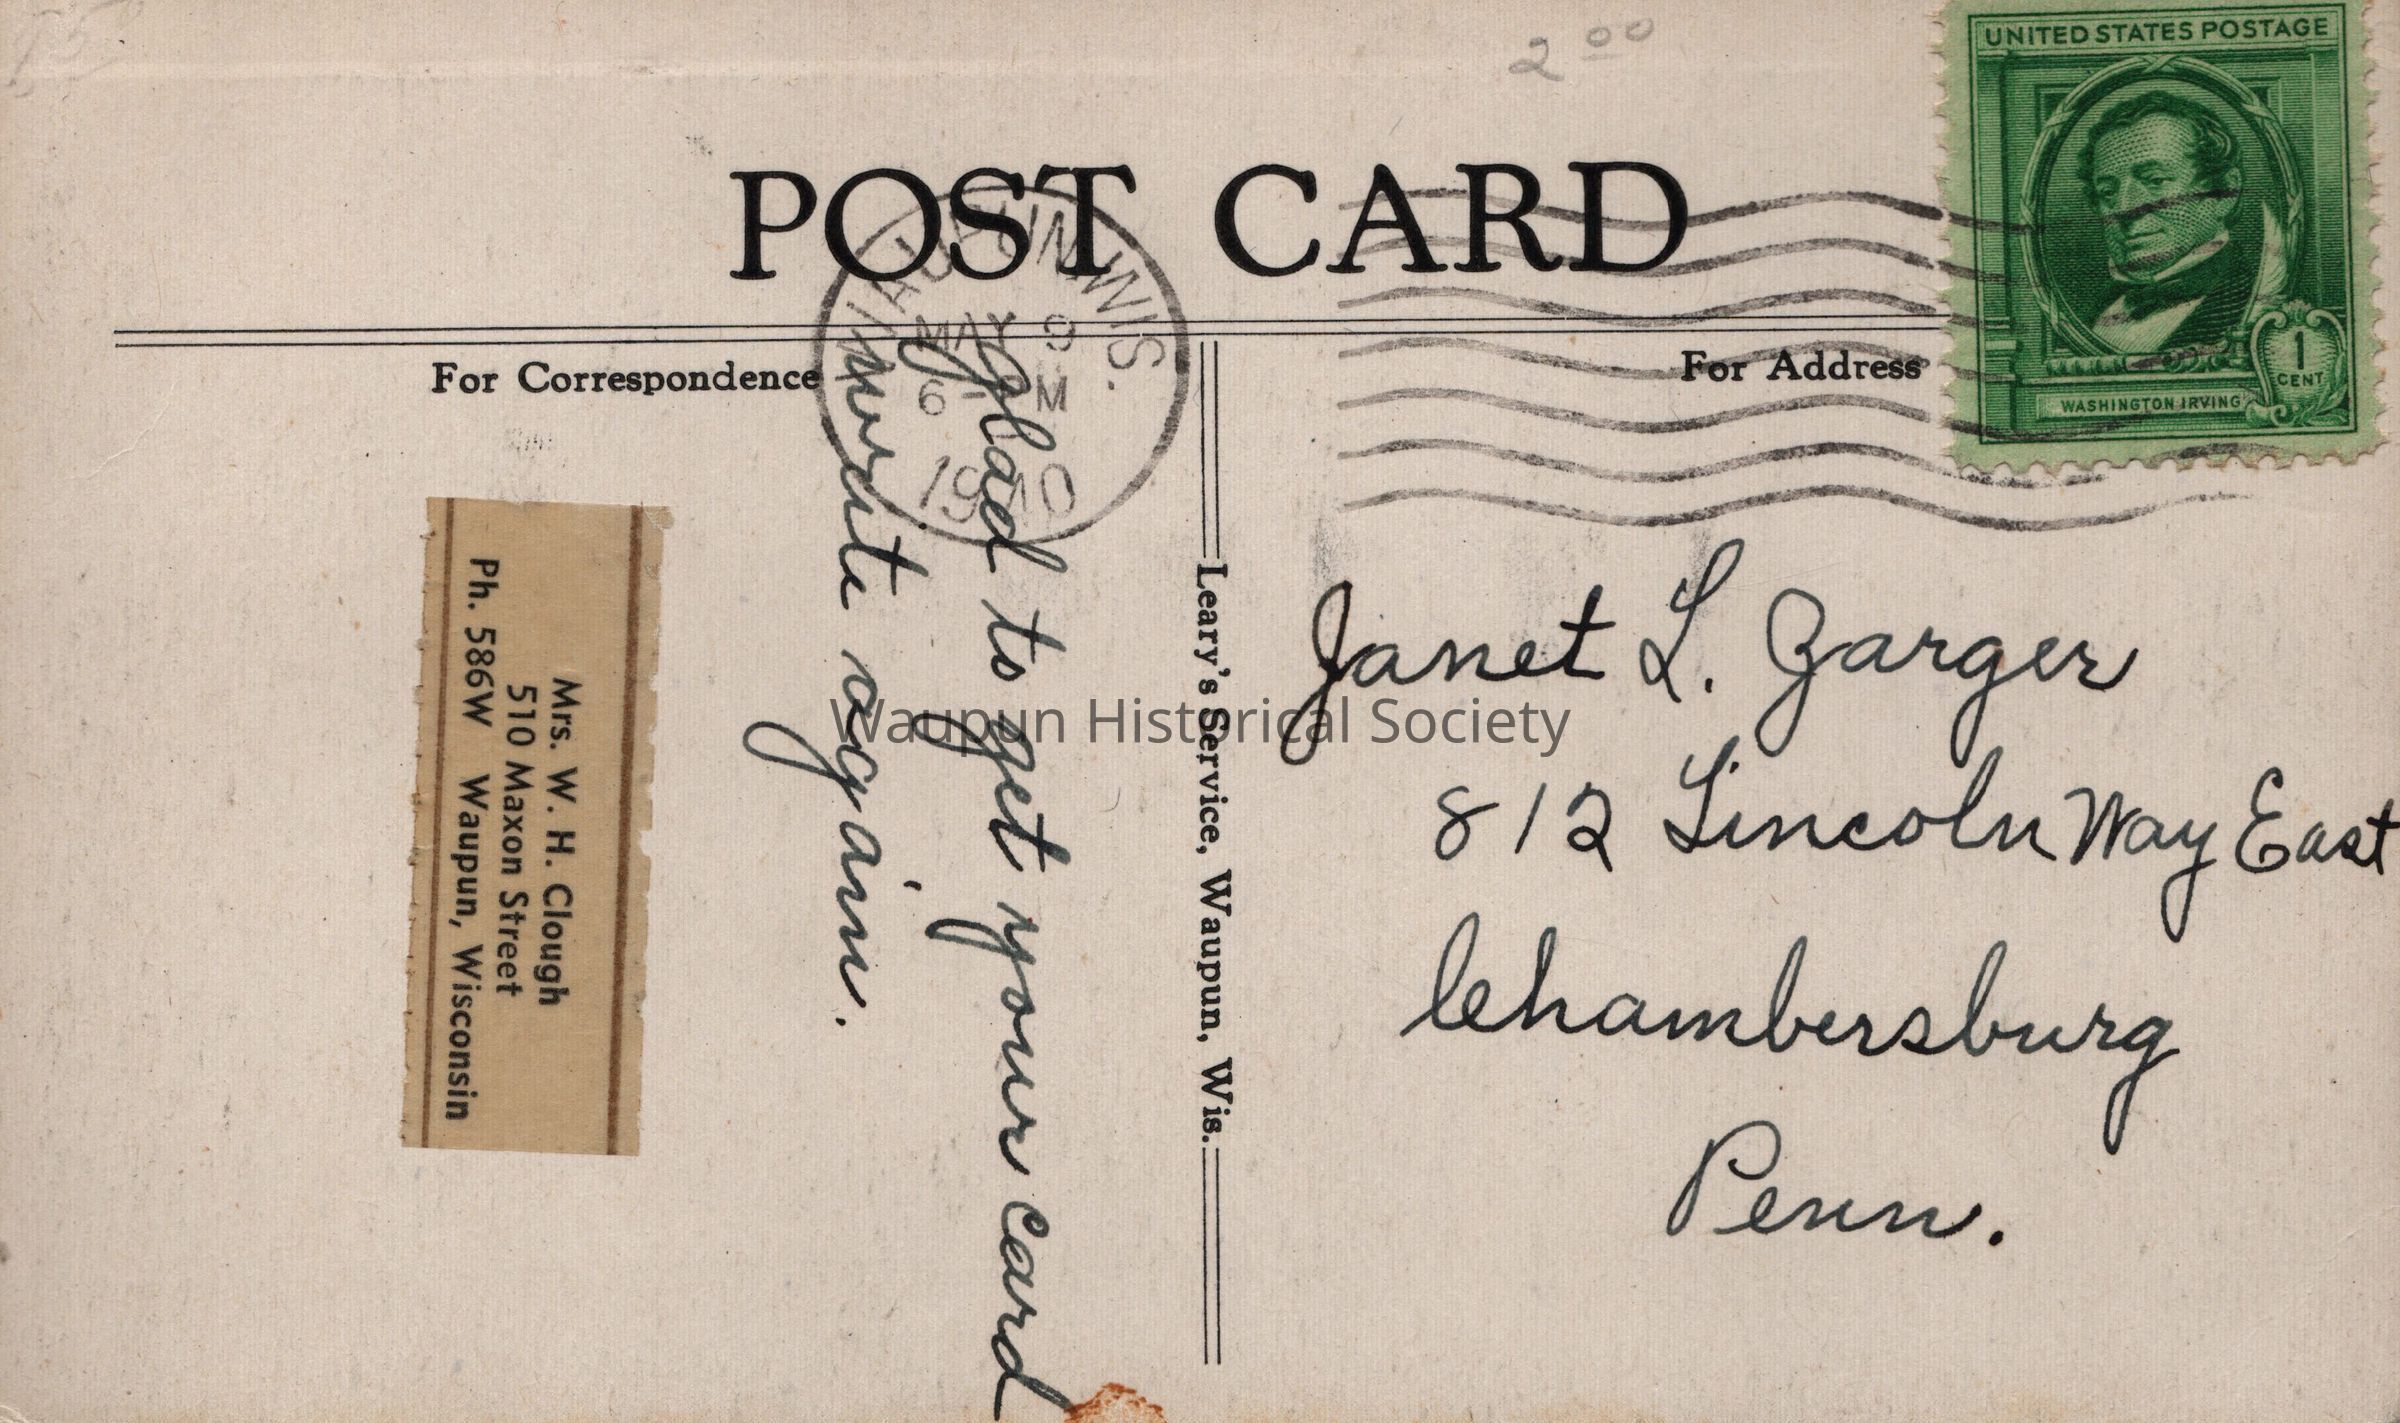 2 00
UNITED STATES POSTAGE
1
CENT
WASHINGTON IRVING
POST CARD
WAUPUN, WIS.
MAY 9
6 M
1940
For Correspondence
For Address
glad to get your card
write again.
Mrs. W. H. Clough
510 Maxon Street
Ph. 586W Waupun, Wisconsin
Leary's Service, Waupun, Wis.
Janet L. Zarger
812 Lincoln Way East
Chambersburg
Penn.
Waupun Historical Society